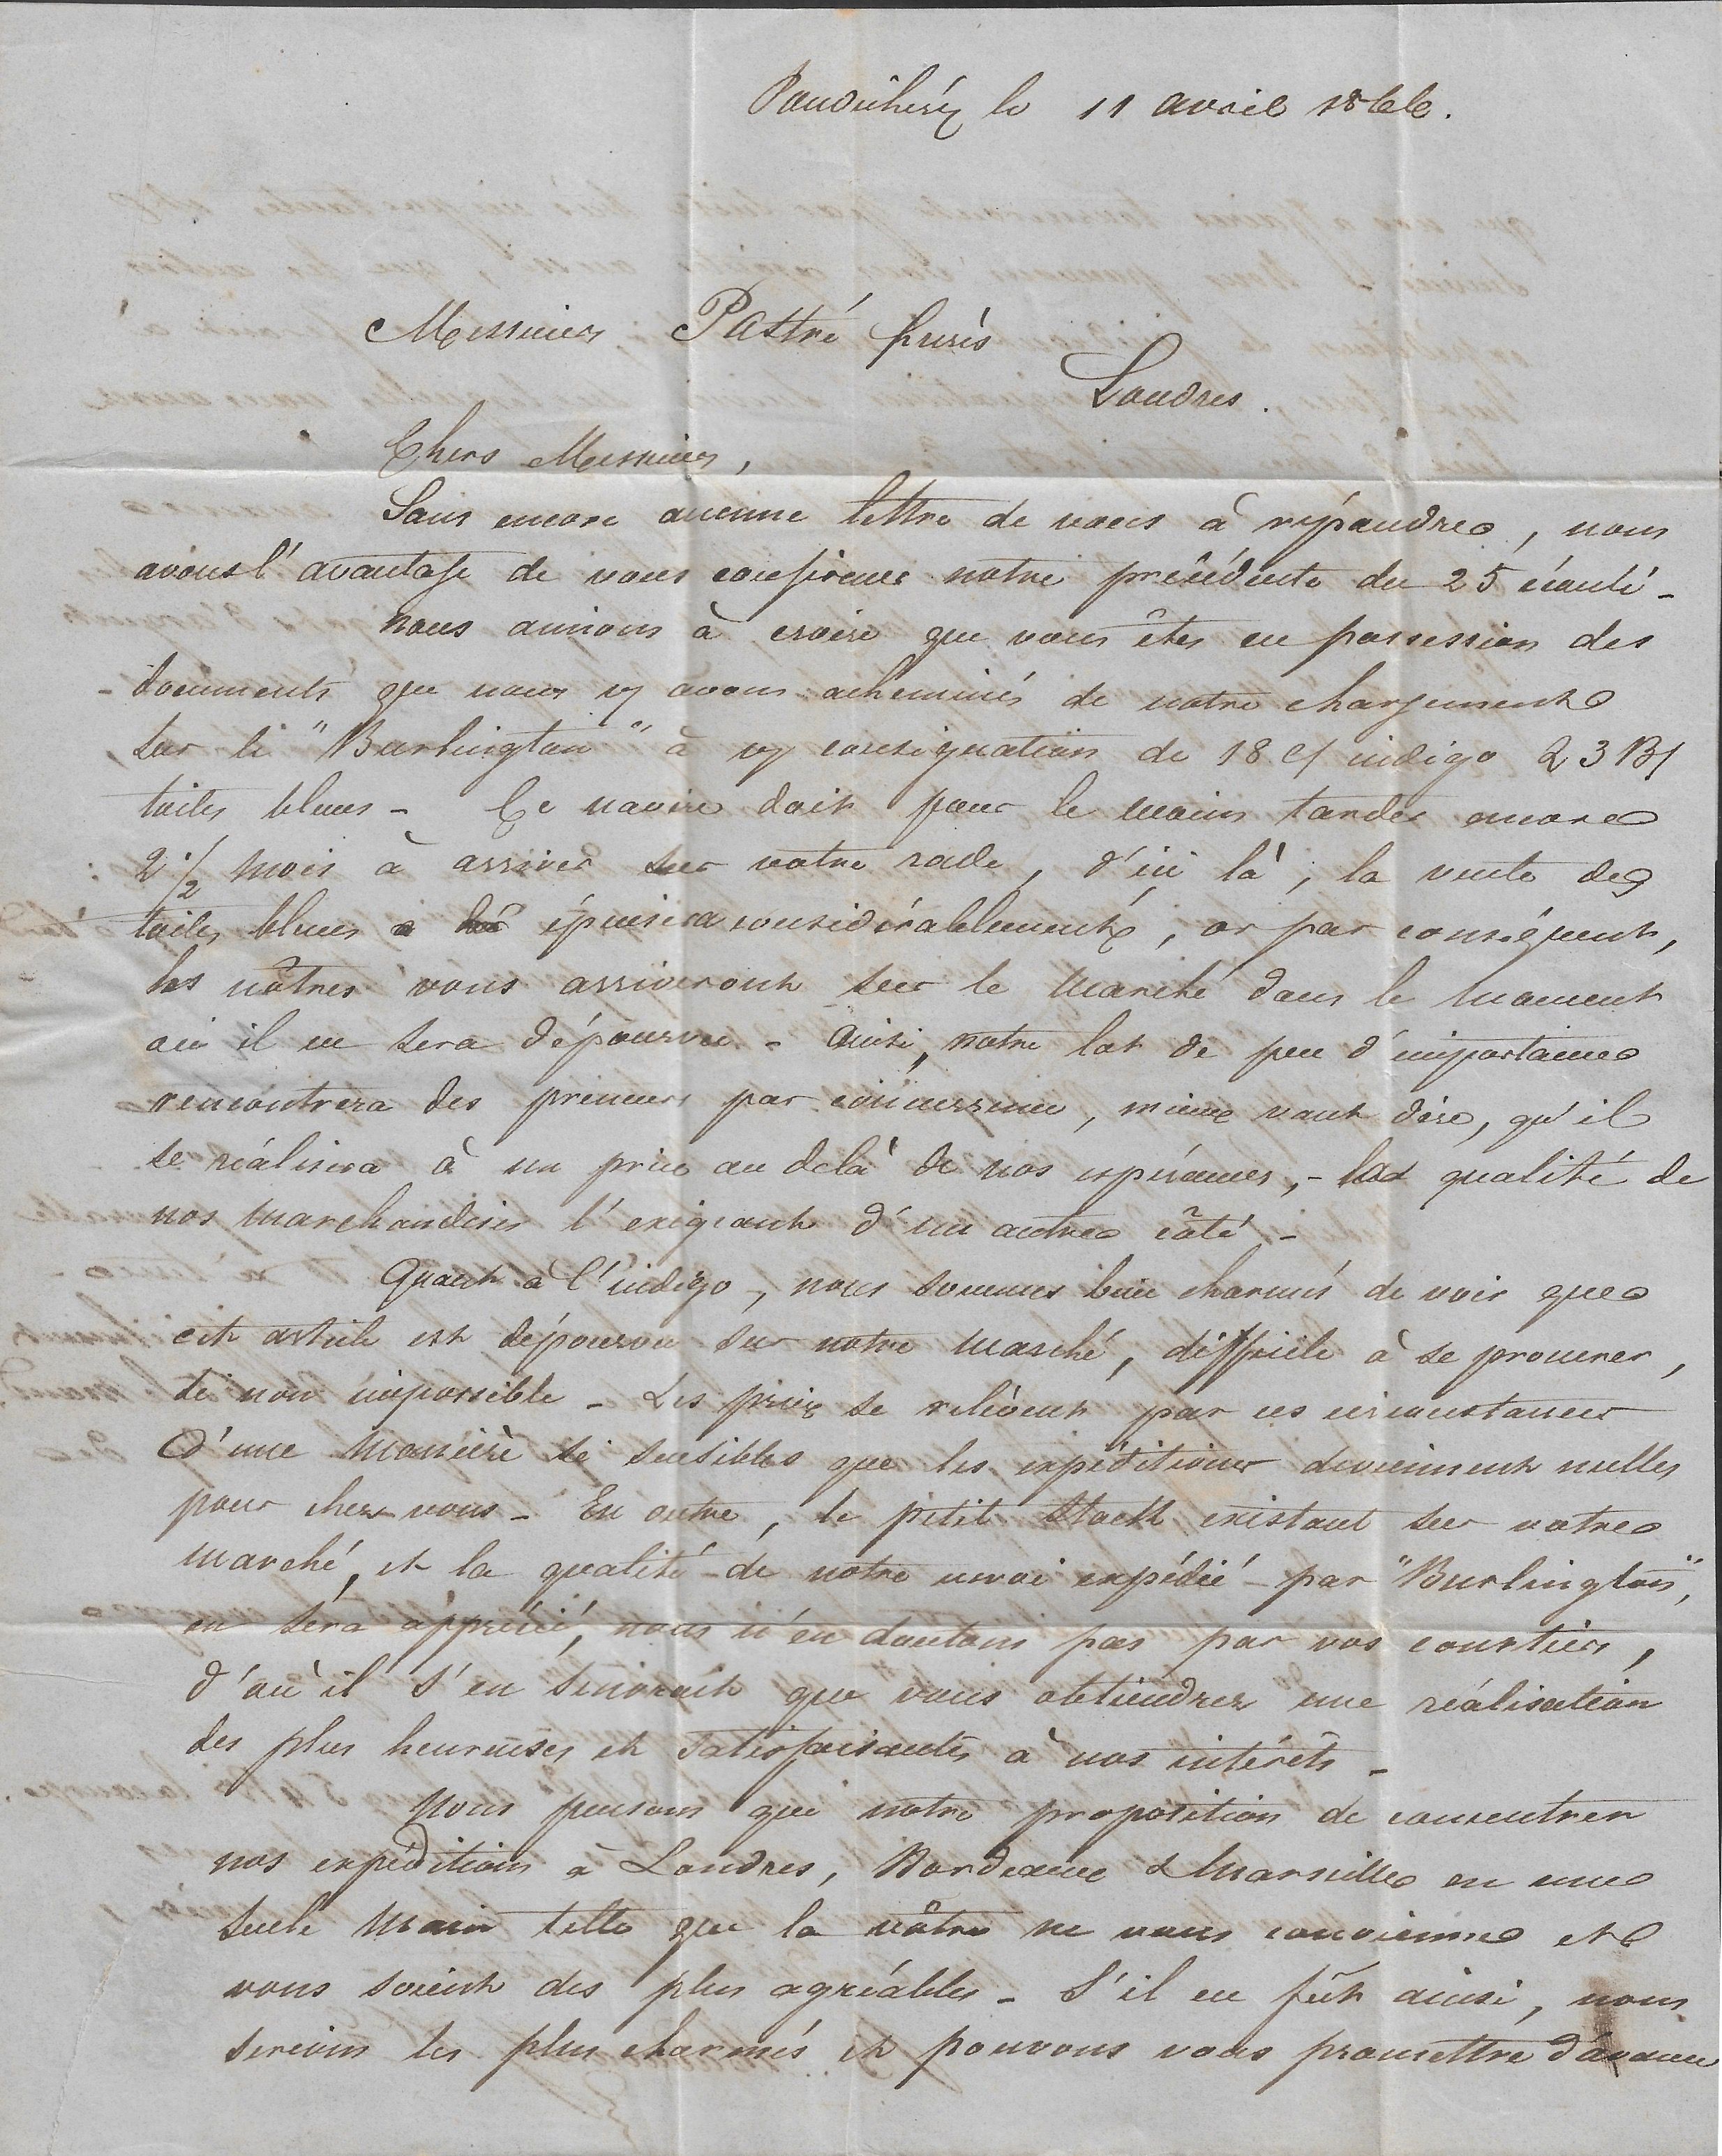 Pondichéry le 11 avril 1866.
Messieurs Pastré frères
Londres.
Chers Messieurs,
Sans encore aucune lettre de vous à répondre, nous
avons l'avantage de vous confirmer notre précédente du 25 écoulé -
Nous aimons à croire que vous êtes en possession des
documents que nous vs avons acheminés de notre chargement
sur le "Burlington" à vs consignation de 18 c/ indigo & 3 B/
toiles bleues - Ce navire doit pour le moins tarder encore
2 1/2 mois à arriver sur votre rade, d'ici là, la vente des
toiles bleues épuisera considérablement, or par conséquent,
les nôtres vous arriveront sur le marché dans le moment
où il en sera dépourvu - Ainsi, notre lot de peu d'importance
rencontrera des preneurs par, mieux vaut dire, qu'il
se réalisera à un prix au delà de nos espérances, - la qualité de
nos marchandises l'exigeant d'un autre côté -
Quant à l'indigo -, nous sommes bien charmés de voir que
cet article est dépourvu sur notre marché, difficile à se procurer,
si non impossible - Les prix se relèvent par ces circonstances
d'une manière si sensibles que les expéditions deviennent nulles
pour chez vous - En outre, le petit stock existant sur votre
marché, et la qualité de notre envoi expédié par "Burlington",
en sera apprécié, nous n'en doutons pas par vos courtiers,
d'où il s'en que vous obtiendrez une réalisation
des plus heureuses et satisfaisantes à nos intérêts -
Nous pensons que notre proposition de concentrer
nos expéditions à Londres, Bordeaux & Marseille en une
seule main telle que la vôtre ne vous convienne et
vous soient des plus agréables - S'il en fût ainsi, nous
serions les plus charmés et pouvons vous promettre d'avance